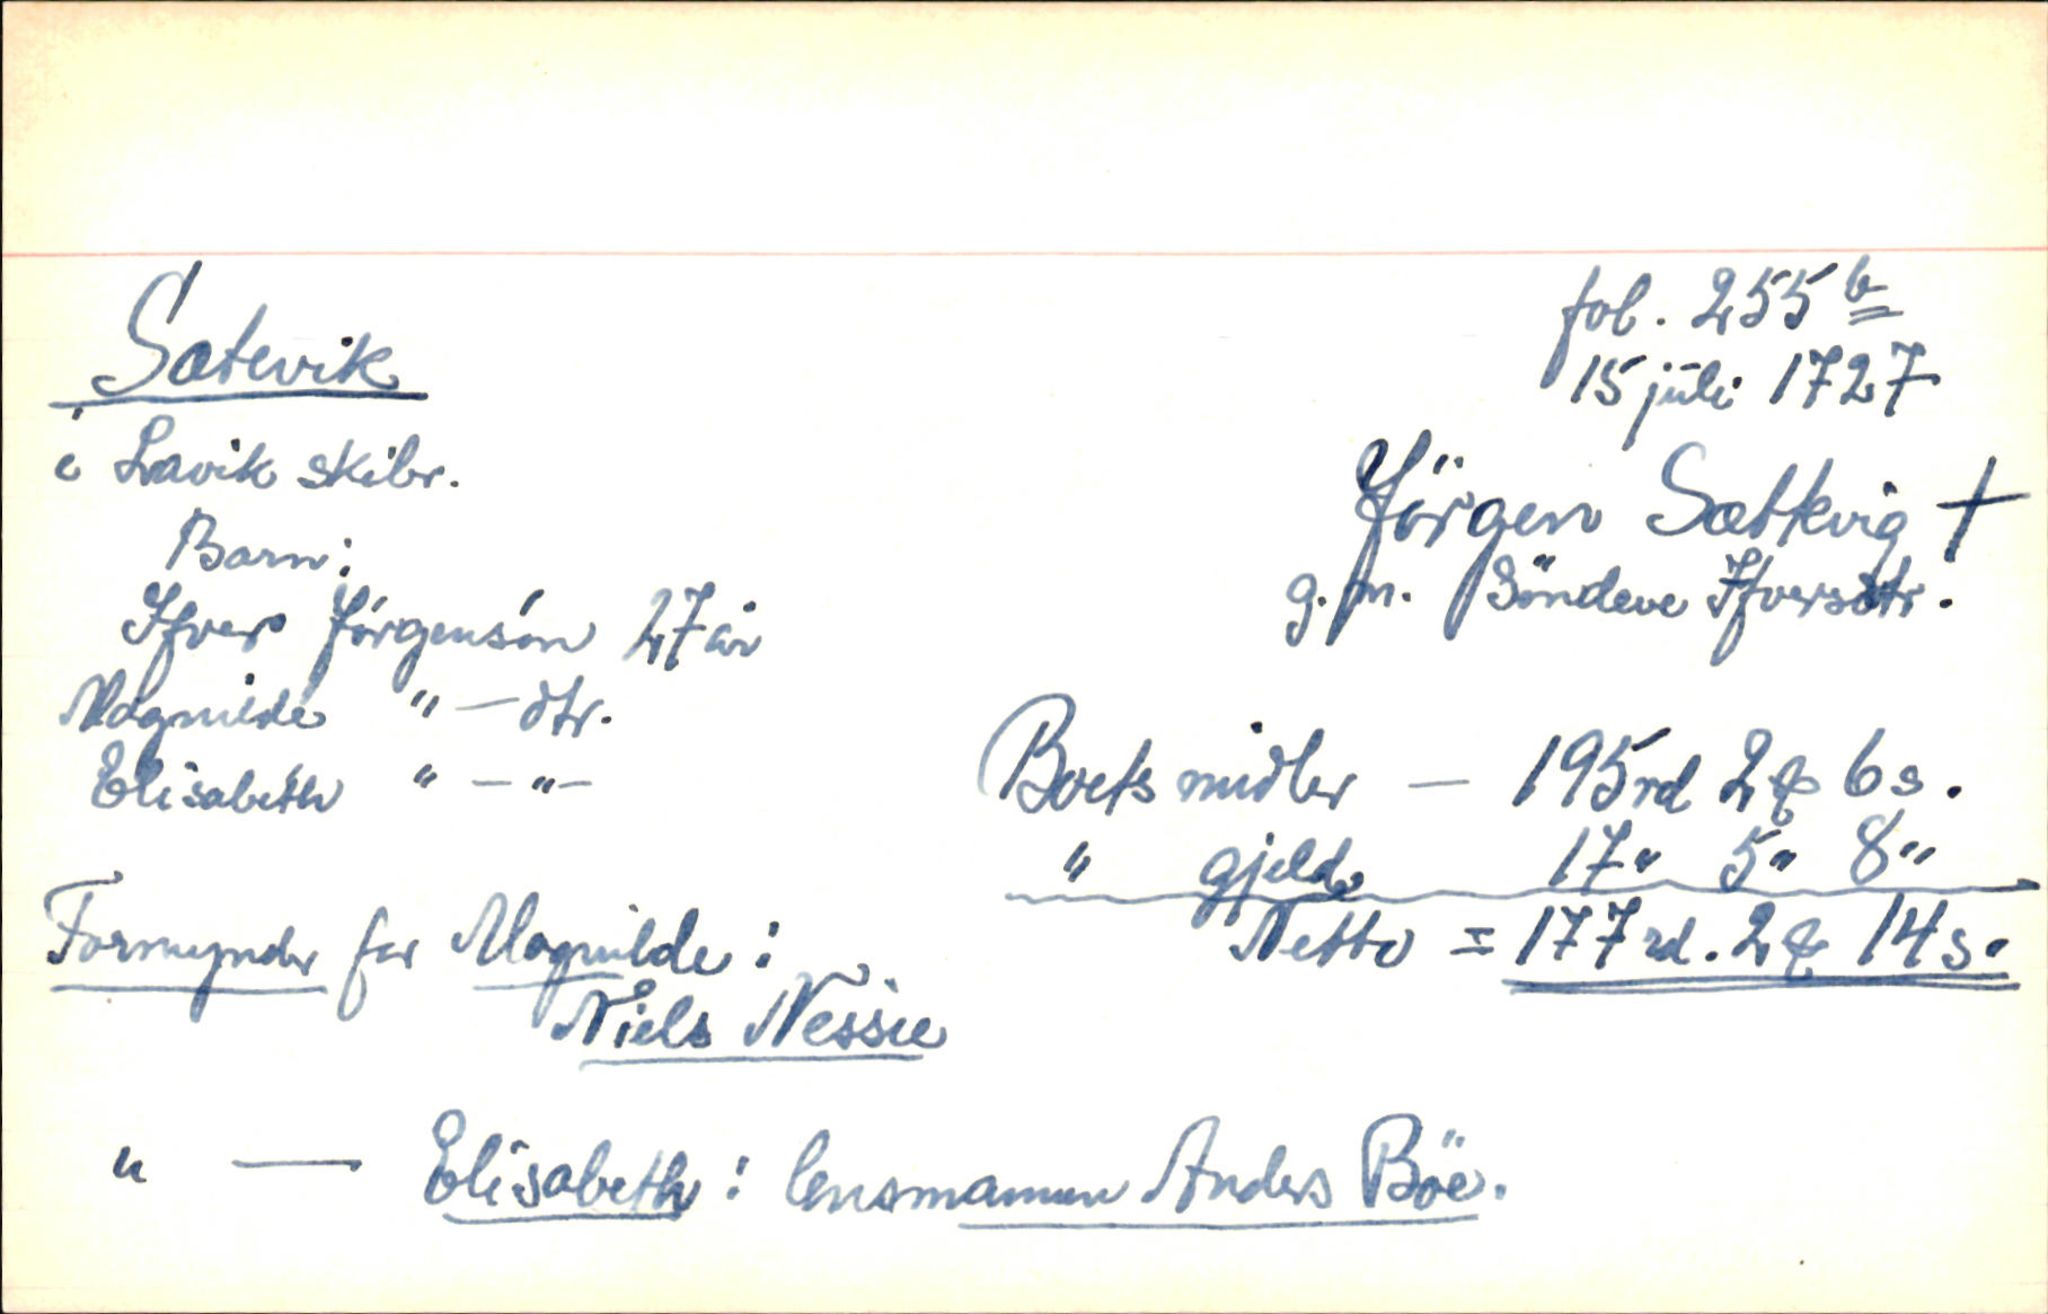 fol. 255 b
15 juli 1727
Sætevik
i Lavik skibr.
Jörgen Sætkvig †
g. m. Söndeve Ifversdtr.
Barn:
Ifver Jörgensön 27 år
Magnilde " — dtr.
Elisabeth " — " —
Boets midler — 195 rd 2 ₰ 6 s.
" gjeld 17 " 5 " 8 "
Netto = 177 rd. 2 ₰ 14 s.
Formynder for Magnilde:
Niels Nessie
" — Elisabeth: lensmannen Anders Böe.